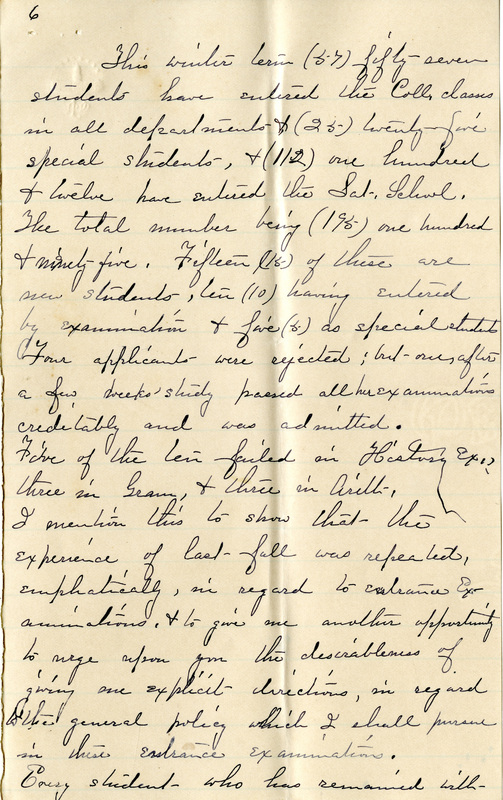 6
This winter term (57) fifty-seven
students have entered the Coll. classes
in all departments & (25) twenty-five
special students, & (112) one hundred
& twelve have entered the Sat. School.
The total number being (195) one hundred
& ninety-five. Fifteen (15) of these are
new students, ten (10) having entered
by examination & five (5) as special students
Four applicants were rejected; but one, after
a few weeks' study passed all her examinations
creditably and was admitted.
Five of the ten failed in History Ex.,
three in Gram, & three in Arith.,
I mention this to show that the
experience of last fall was repeated,
emphatically, in regard to entrance Ex-
aminations. & to give me another opportunity
to urge upon you the desirableness of
giving me explicit directions, in regard
to the general policy which I shall pursue
in these entrance examinations.
Every student who has remained with-